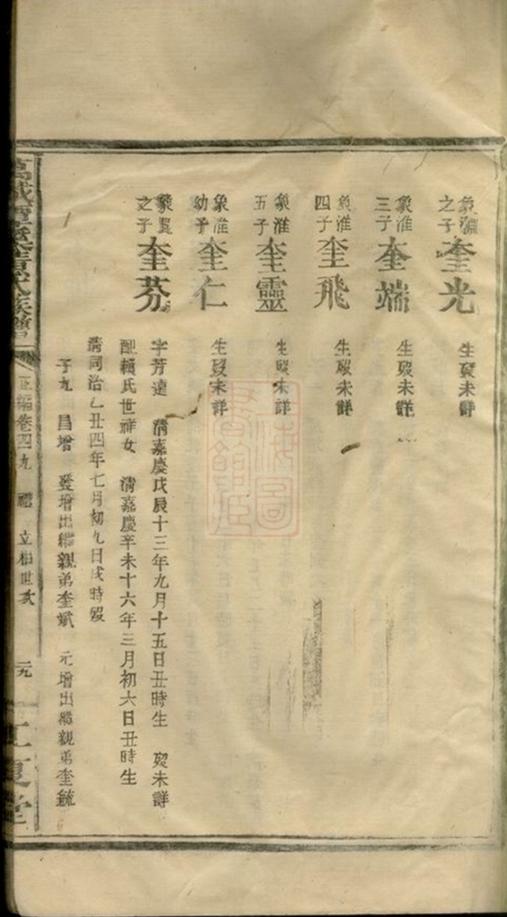 象瀛之子 奎光 生歿未詳
象淮三子 奎端 生歿未詳
象淮四子 奎飛 生歿未詳
象淮五子 奎靈 生歿未詳
象淮幼子 奎仁 生歿未詳
之子 奎芬 字芳遠 清嘉慶戊辰十三年九月十五日丑時生 歿未詳
配賴氏世祥女 清嘉慶辛未十六年三月初六日丑時生
清同治乙丑四年七月初九日戌時歿
子九 昌增 發增出繼親弟奎斌 元增出繼親弟奎毓
氏族譜
正編卷四九 立相世次
元九
江夏堂